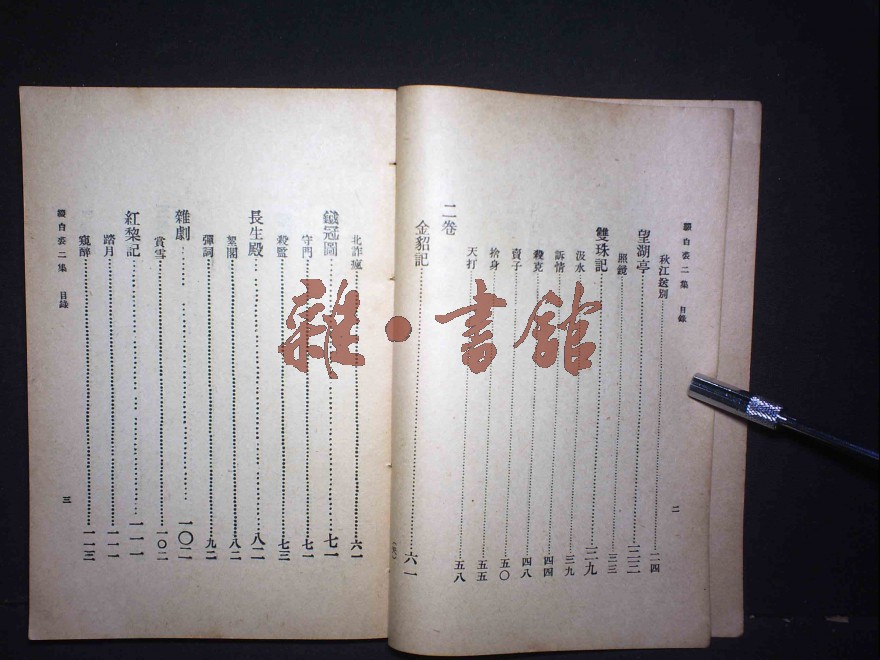 綴白裘二集 目錄
二
秋江送別 二四
望湖亭 三三
照鏡 三三
雙珠記 三九
汲水 三九
訴情 四四
殺克 四八
賣子 五〇
捨身 五五
天打 五八
二卷
金貂記 六一
北詐瘋 六一
鐵冠圖 七一
守門 七一
殺監 七三
長生殿 八二
絮閣 八二
彈詞 九二
雜劇 一〇二
賞雪 一〇二
紅棃記 一一一
踏月 一一一
窺醉 一一三
綴白裘二集 目錄
三
雜・書館